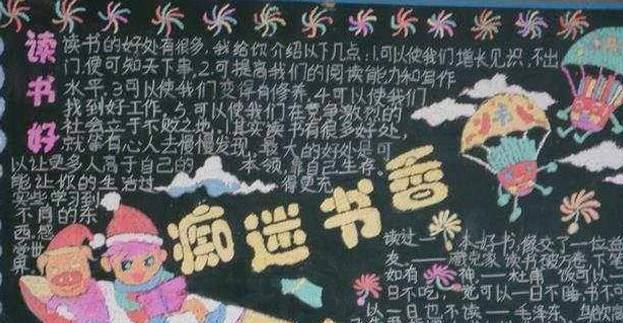 读书好
读书的好处有很多,我给你介绍以下几点:1.可以使我们增长见识,不出
门,便可知天下事,2.可提高我们的阅读能力和写作
水平,3.可以使我们变得有修养,4.可以使我们
找到好工作,5.可以使我们在竞争激烈的
社会立于不败之地。其实读书有很多好处,
就等有心人去慢慢发现,最大的好处是可
以让更多人高于自己的 本领,靠自己生存。
能让你的生活过 得更充
实些学习到
不同的东
西。感
受世
界
痴迷书香
读过一本好书,像交了一位益
友——臧克家 读书破万卷,下笔
如有神——杜甫 饭可以一
日不吃,觉可以一日不睡,书不可
以一日也不读——毛泽东